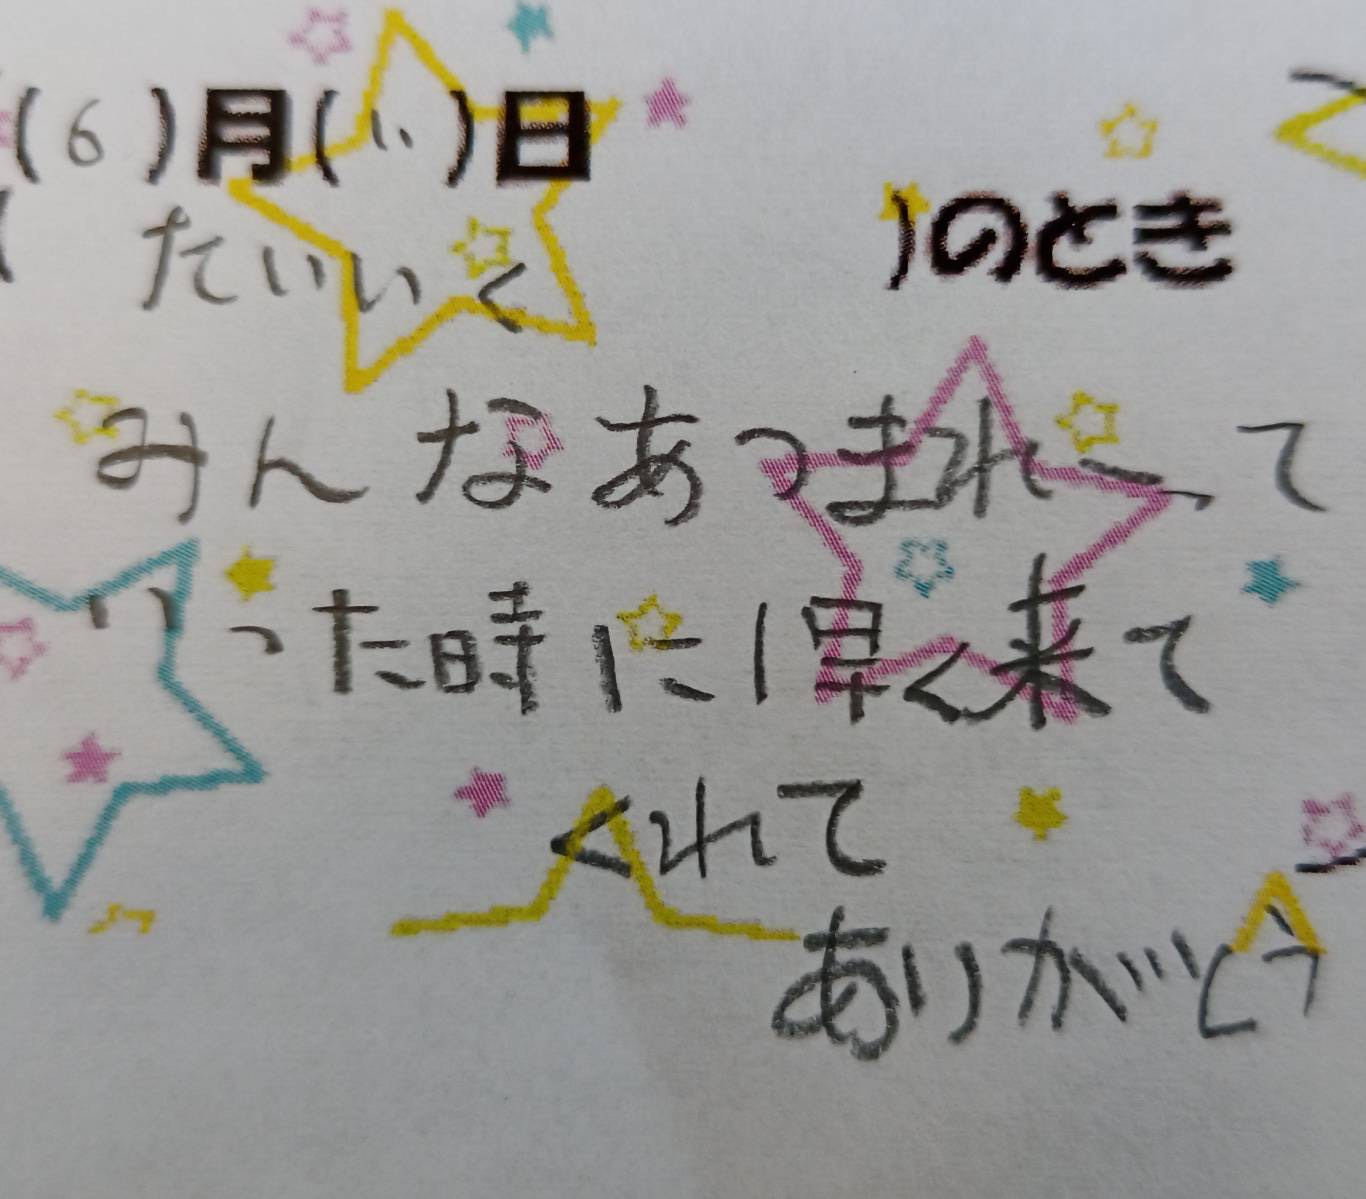 (6)月(11)日
(たいいく)のとき
みんなあつまれーって
いった時に早く来て
くれて
ありがとう